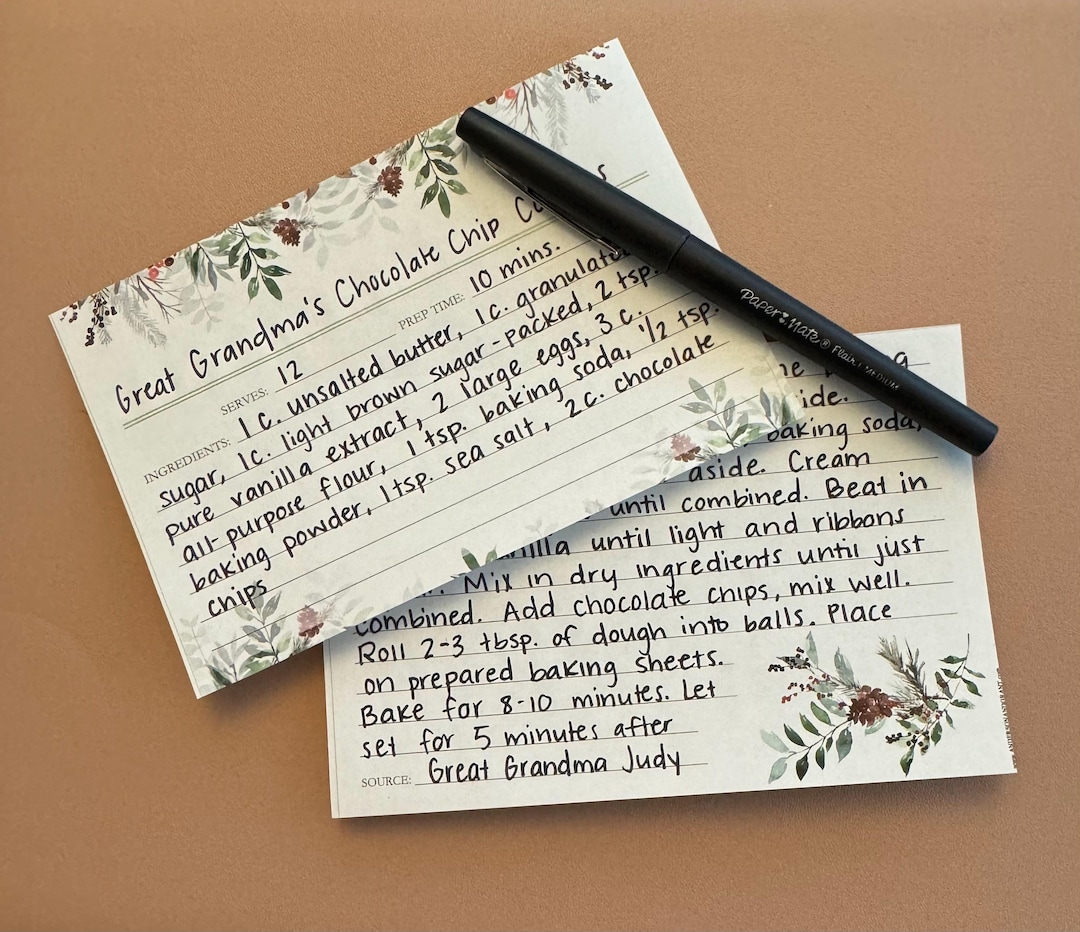 Great Grandma's Chocolate Chip
SERVES: 12 PREP TIME: 10 mins.
INGREDIENTS: 1 c. unsalted butter, 1c. granulated
sugar, 1c. light brown sugar-packed, 2 tsp.
pure vanilla extract, 2 large eggs, 3 c.
all-purpose flour, 1 tsp. baking soda, 1/2 tsp.
baking powder, 1tsp. sea salt, 2c. chocolate
chips
Paper Mate® Flair MEDIUM
baking soda,
aside. Cream
until combined. Beat in
until light and ribbons
Mix in dry ingredients until just
combined. Add chocolate chips, mix well.
Roll 2-3 tbsp. of dough into balls. Place
on prepared baking sheets.
Bake for 8-10 minutes. Let
set for 5 minutes after
SOURCE: Great Grandma Judy